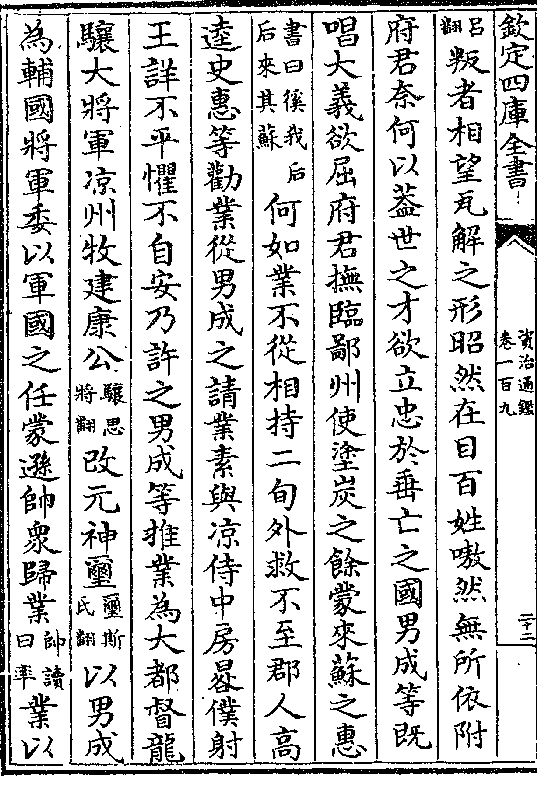 欽定四庫全書
資治通鑑
卷一百九
二十二
吕翻叛者相望瓦解之形昭然在目百姓嗷然無所依附
府君奈何以葢世之才欲立忠於垂亡之國男成等既
唱大義欲屈府君撫臨鄙州使塗炭之餘蒙來蘇之惠
書曰徯我后后來其蘇何如業不從相持二旬外救不至郡人高
逵史惠等勸業從男成之請業素與凉侍中房晷僕射
王詳不平懼不自安乃許之男成等推業為大都督龍
驤大將軍凉州牧建康公驤思將翻改元神璽璽斯氏翻以男成
為輔國將軍委以軍國之任蒙遜帥衆歸業帥讀曰率業以